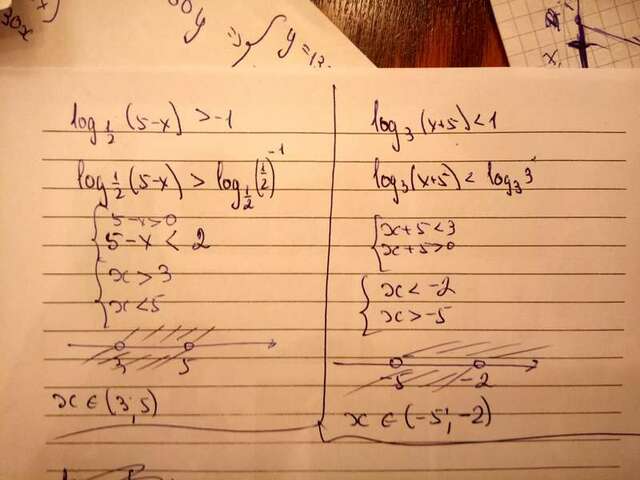 log_{1/2} (5-x) > -1
log_{1/2} (5-x) > log_{1/2} (1/2)^{-1}
{ 5-x>0
5-x < 2
{ x > 3
x < 5
3 5
x ∈ (3; 5)
log_3 (x+5) < 1
log_3 (x+5) < log_3 3
{ x+5<3
x+5>0
{ x < -2
x > -5
-5 -2
x ∈ (-5; -2)